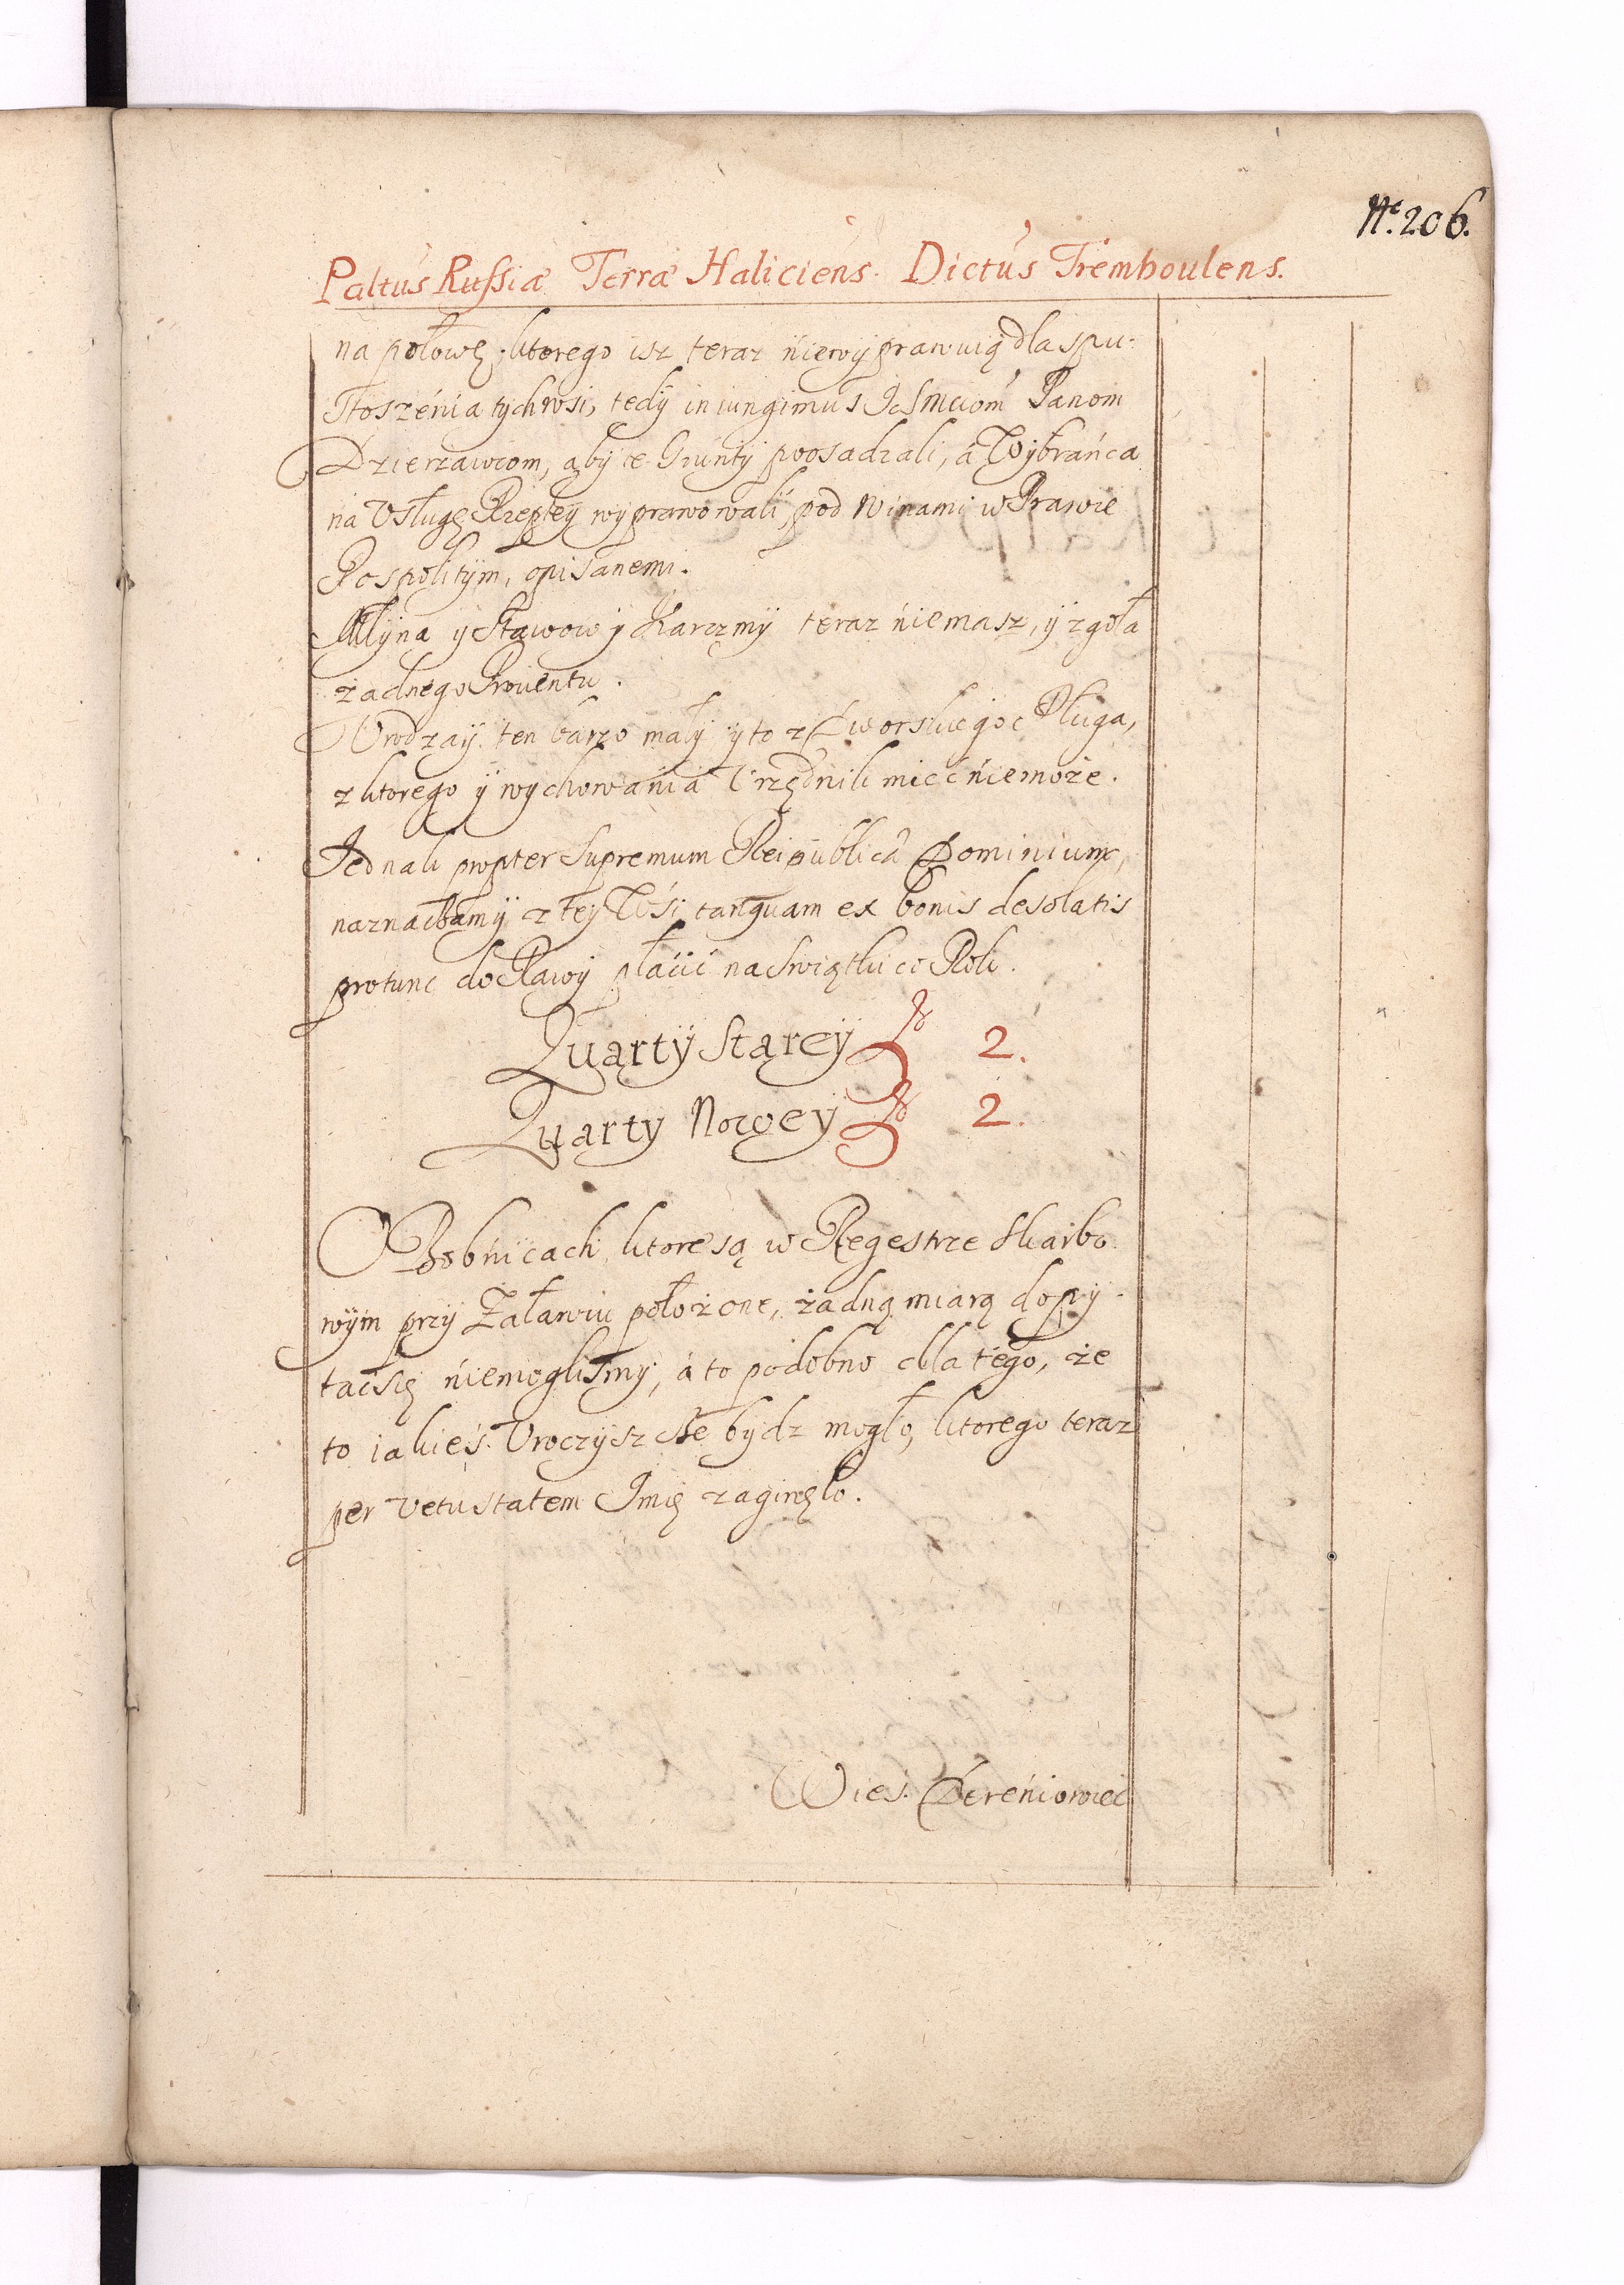 Nr. 206.
Paltus Russiæ Terræ Haliciens. Dictus Tremboulens.
na połowę, ktorego isz teraz niewyprawuią dla spu-
stoszenia tych wsi, tedy iniungimus Ichmciom Panom
Dzierzawcom, aby te Grunty poosadzali, a Wybrańca
na Usługę Rzeptey wyprawowali, pod winami w Prawie
Pospolitym, opisanemi.
Młyna y Stawow y Karczmy teraz niemasz, y zgoła
żadnego Prouentu.
Urodzay ten barzo mały y to z Dworskiego Pługa,
z ktorego y wychowania Urzędnik mieć niemoże.
Jednak propter Supremum Reipublicæ Dominium,
naznaczamy z tey Wsi tanquam ex bonis desolatis
protunc do Rawy płacić na Swiątki co Rok.
Quarty Starey fl 2.
Quarty Nowey fl 2.
O Bobnicach, ktore są w Regestrze Skarbo-
wym przy Załawiu położone, żadną miarą dopy-
tać się niemoglismy, a to podobno dla tego, że
to iakieś Uroczyszcze bydz mogło, ktorego teraz
per vetustatem Imię zaginęło.
Wieś Dereniowiec